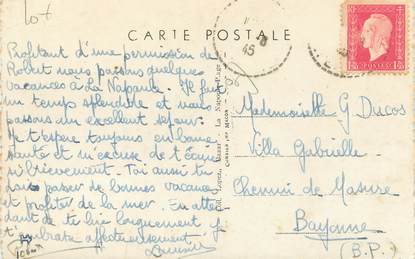 10f
CARTE POSTALE
45
1F50
Profitant d'une permission de
Robert nous passons quelques
vacances à la Napoule. Il fait
un temps splendide et nous
passons un excellent séjour.
Je t'espère toujours en bonne
santé et m'excuse de t'écrire
si brièvement. Toi aussi tu
dois passer de bonnes vacances
et profiter de la mer. En atten-
dant de te lire longuement je
t'embrasse affectueusement
Mademoiselle G. Ducos
Villa Gabrielle
Chemin de Masure
Bayonne
(B.P.)